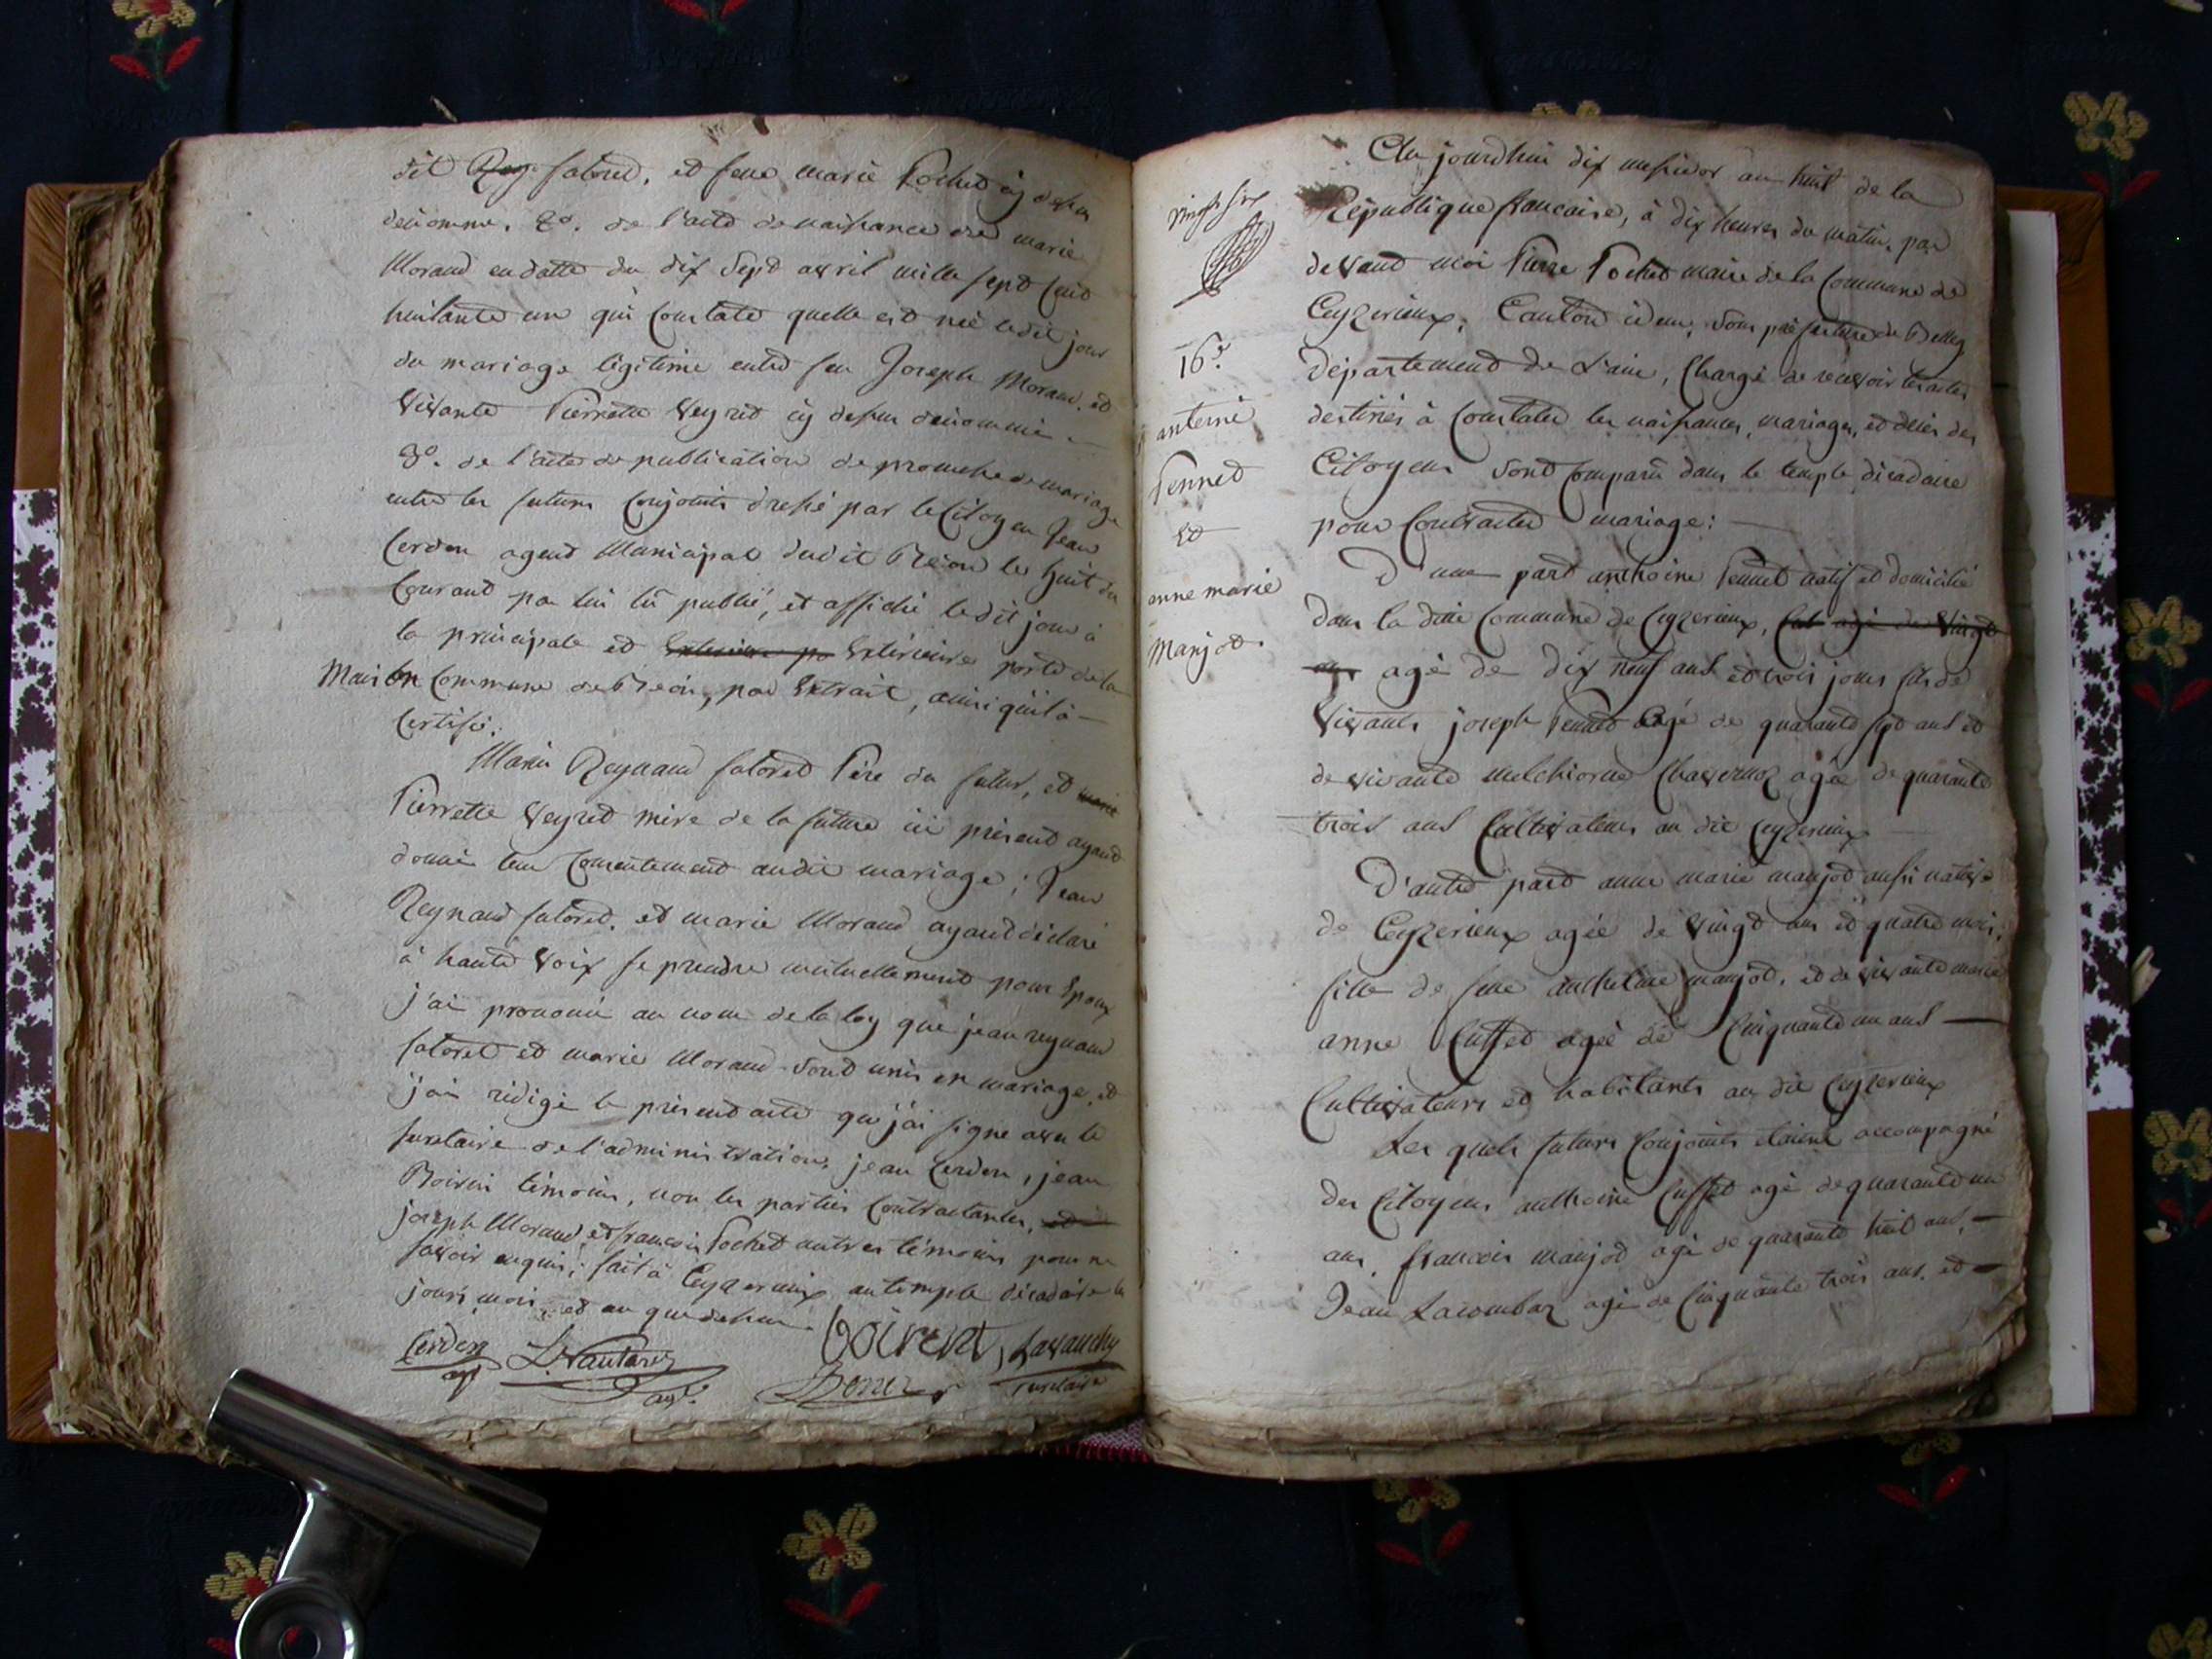 dit Rey Satoret, et feue marie Pochet cy dessus
dénommé. 2°. de l'acte de naissance de marie
Morand en datte du dix Sept avril mille sept Cent
huitante un qui Constate quelle est née ledit jour
du mariage légitime entre feu Joseph Morand. et
vivante Pierrette Veyret cy dessus dénommé
3°. de l'acte de publication de promesse de mariage
entre les futurs Conjoints dressé par le Citoyen Jean
Cerdon agent Municipal dudit Béon le huit du
Courant par lui lû publié, et affiché le dit jour à
la principale et Exterieure po Extérieure porte de la
Maison Commune de Béon, par Extrait, ainsi quil à
Certifié.
Marin Reynaud Satoret Père du futur, et marie
Pierrette Veyret mère de la future ici présent ayant
donné leur Consentement audit mariage ; Jean
Reynaud Satoret. et marie Morand ayant déclaré
à haute voix se prendre mutuellement pour Epoux
j'ai prononcé au nom de la loy que jean reynaud
Satoret et marie Morand sont unis en mariage, et
j'ai rédigé le présent acte que j'ai signé avec le
secretaire de l'administration, jean Cerdon, jean
Boirin témoins, non les parties Contractantes, et
joseph Morand et francois Pochet autres témoins pour ne
savoir enquis ; fait à Ceyzerieux au temple décadaire les
jours, mois, et an que dessus.
Cerdon boiren, Lavanchy
agt agt. secretaire
vingt six
16e.
antoine
Pennet
et
anne marie
Manjot.
Au jourdhui dix messidor an huit de la
République francaise, à dix heures du matin, par
devant moi Pierre Pochet maire de la Commune de
Ceyzerieux, Canton idem, sous préfecture de Belley
département de L'ain, Chargé de recevoir les actes
destinés à Constater les naissances, mariages, et décès des
Citoyens sont Comparû dans le temple décadaire
pour Contracter mariage :
D'une part anthoine Pennet natif et domicilié
dans la dite Commune de Ceyzerieux, Cult agé de Vingt
ans agé de dix neuf ans et trois jours fils de
Vivants joseph Pennet agé de quarante sept ans et
de vivante melchiorne Chavernoz agée de quarante
trois ans Cultivateurs au dit Ceyzerieux
D'autre part anne marie manjot aussi native
de Ceyzerieux agée de Vingt ans et quatre mois,
fille de feue anthelme manjot, et de vivante marie
anne Cusset agée de Cinquante un ans
Cultivateurs et habitants au dit Ceyzerieux
Les quels futurs Conjoints étaient accompagné
des Citoyens anthoine Cusset agé de quarante un
ans, francois manjot agé de quarante huit ans,
Jean Lacombaz agé de Cinquante trois ans, et